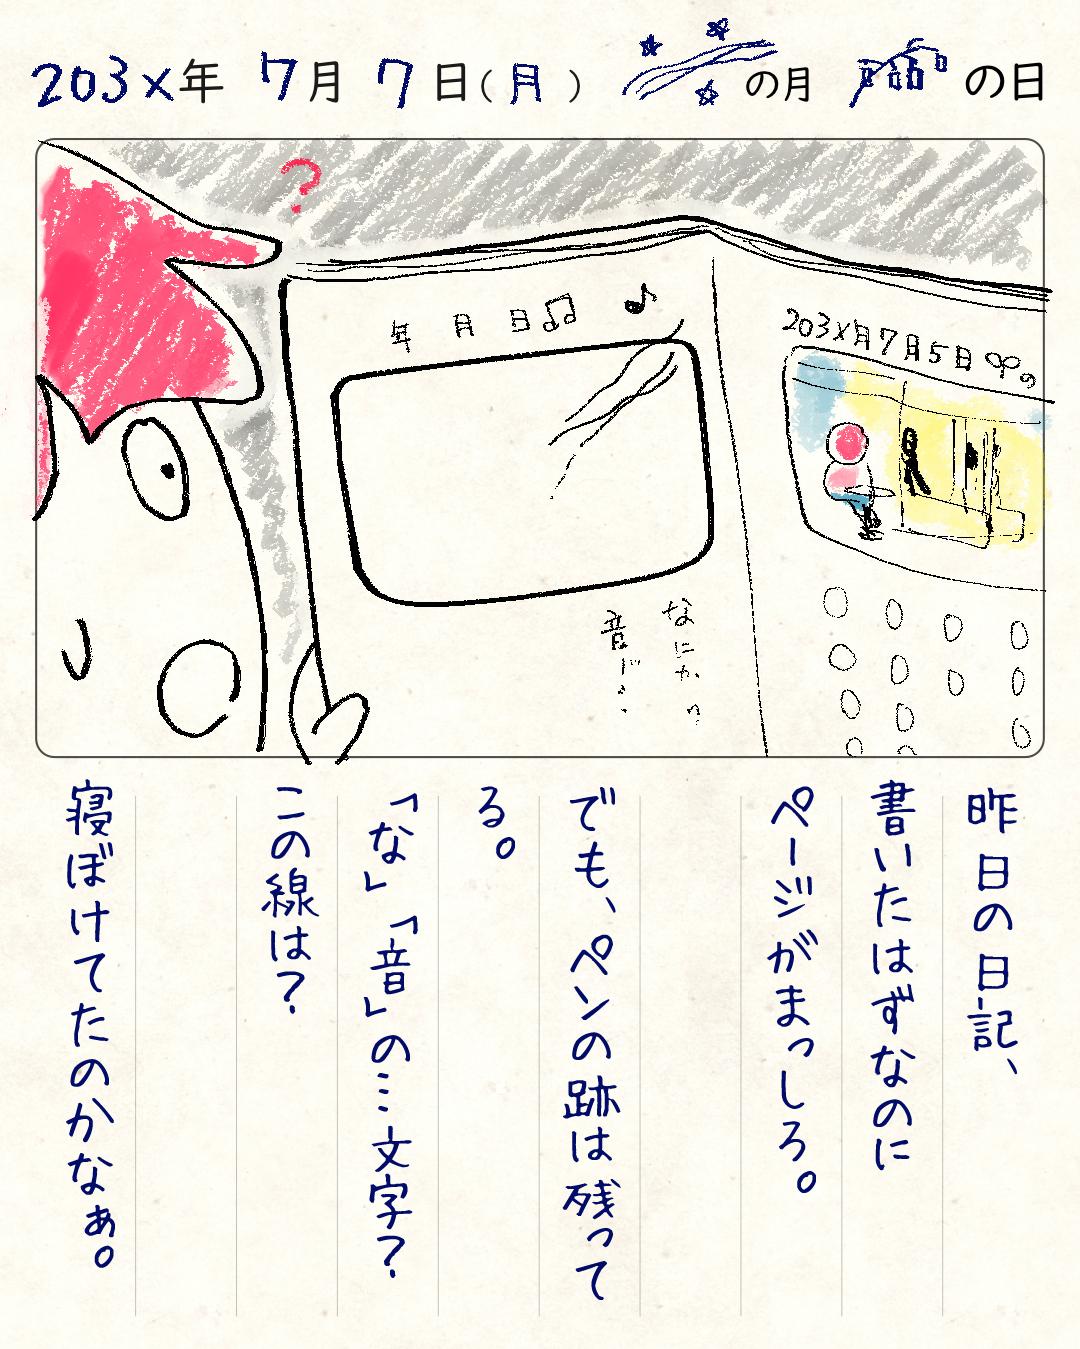 203x年 7月 7日(月) の月 の日
?
年 月 日
203x年7月5日 の
なにかの
音が…
昨日の日記、
書いたはずなのに
ページがまっしろ。
でも、ペンの跡は残って
る。
「な」「音」の…文字?
この線は?
寝ぼけてたのかなぁ。